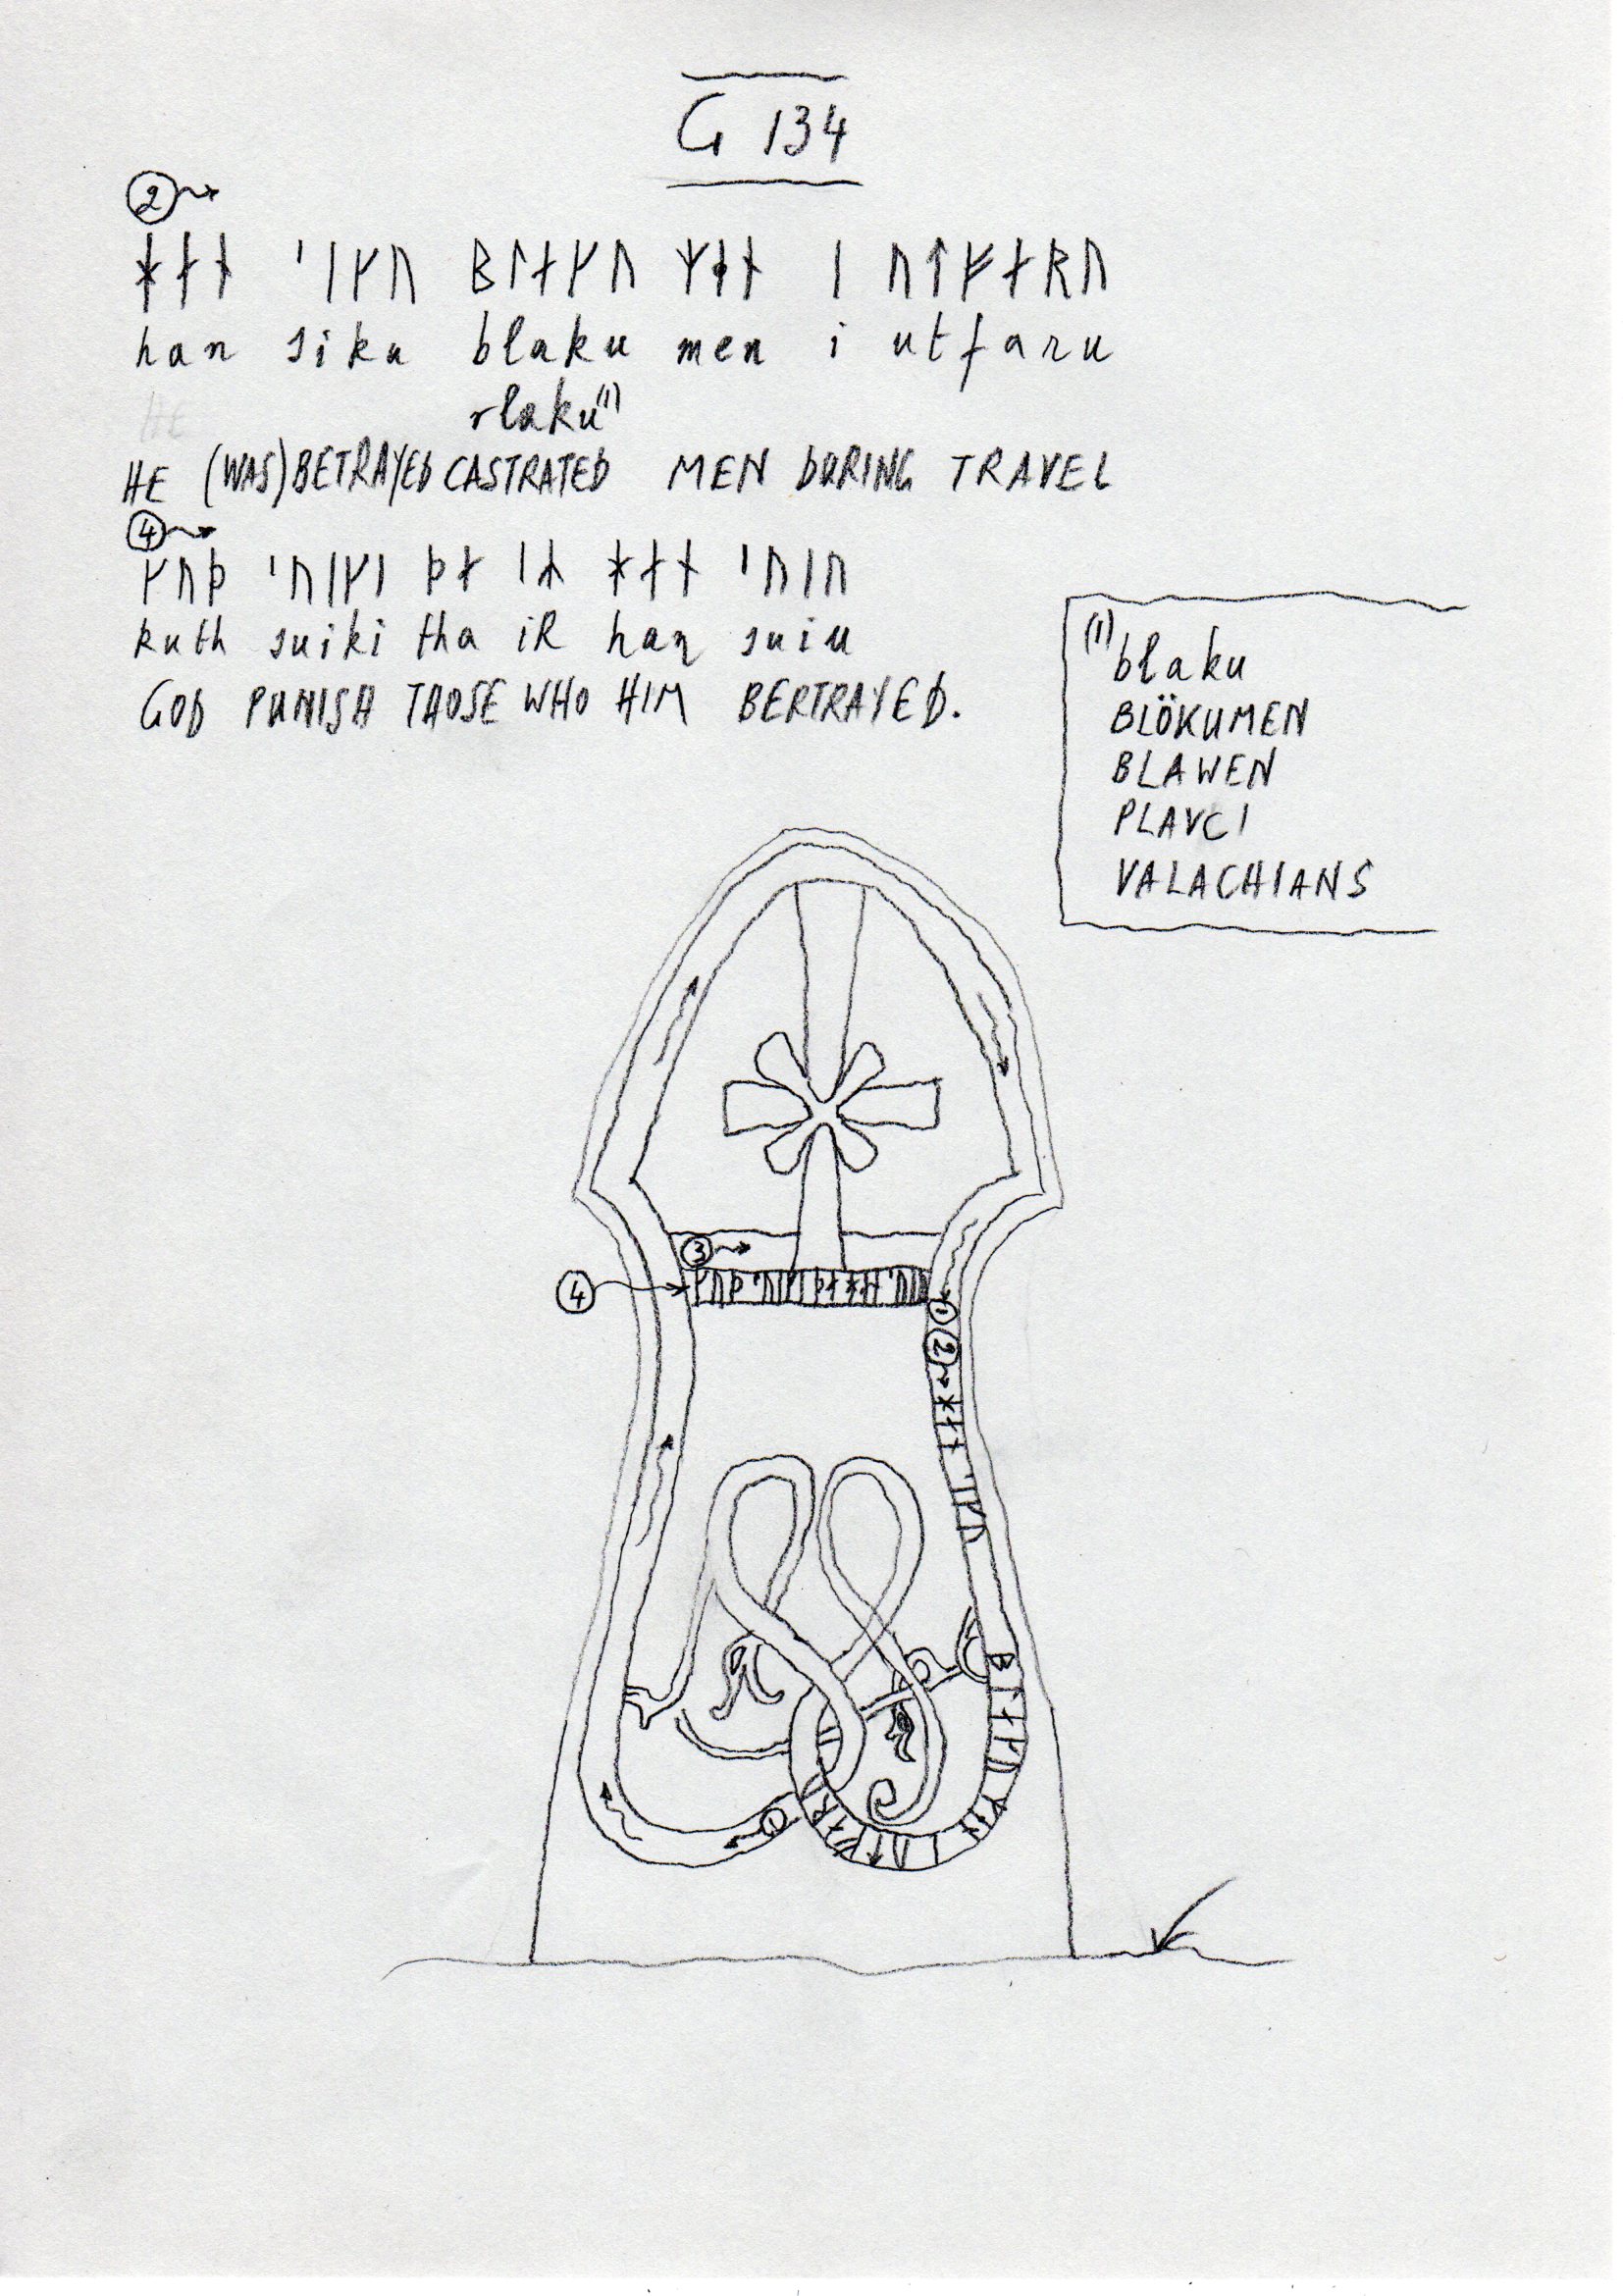 G 134
2
ᚼᛅᚾ ᛌᛁᚴᚢ ᛒᛚᛅᚴᚢ ᛘᛂᚾ ᛁ ᚢᛏᚠᛅᚱᚢ
han siku blaku men i utfaru
HE rlaku(1)
HE (WAS) BETRAYED CASTRATED MEN DURING TRAVEL
4
ᚴᚢᚦ ᛌᚢᛁᚴᛁ ᚦᛅ ᛁᛦ ᚼᛅᚾ ᛌᚢᛁᚢ
kuth suiki tha iR han suiu
GOD PUNISH THOSE WHO HIM BERTRAYED.
(1) blaku
BLÖKUMEN
BLAWEN
PLAVCI
VALACHIANS
3
4
1
2
ᚼᛅᚾ ᛌᛁᚴᚢ
ᛒᛚᛅᚴᚢ ᛘᛂᚾ ᛁ ᚢᛏᚠᛅᚱᚢ
1